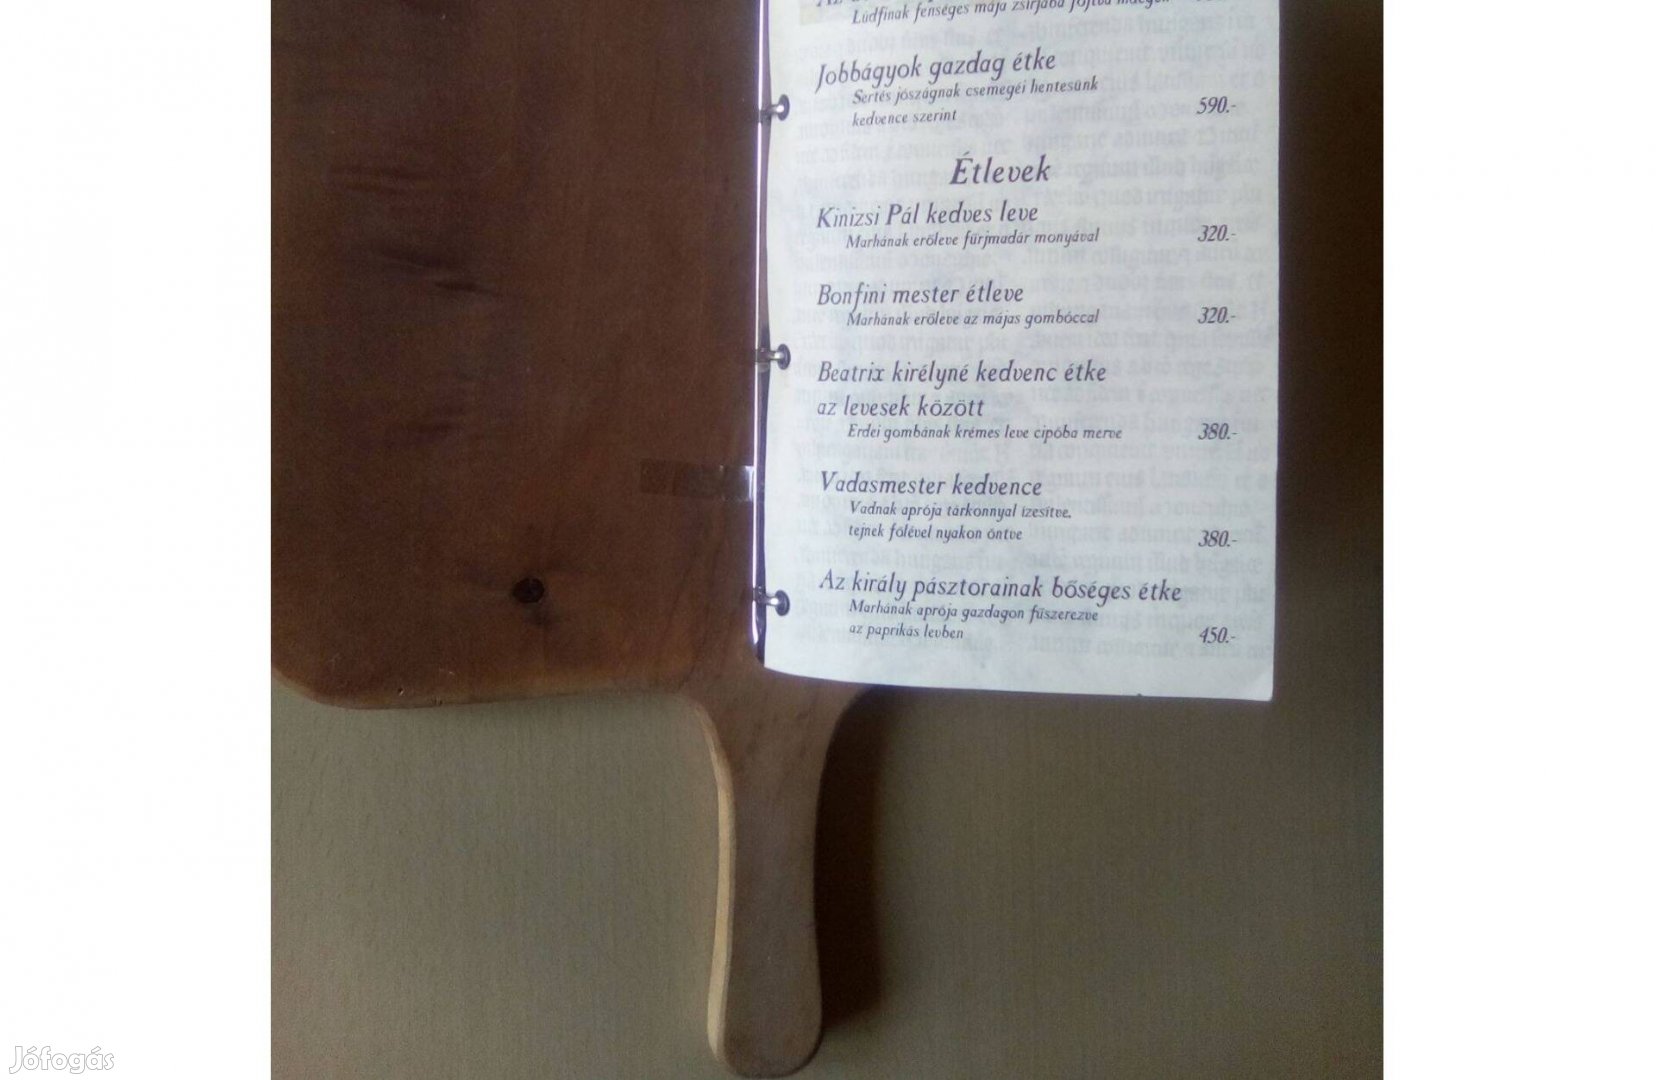 Lúdfinak fenséges mája zsírjába
Jobbágyok gazdag étke
Sertés jószágnak csemegéi hentesünk
kedvence szerint 590.-
Étlevek
Kinizsi Pál kedves leve
Marhának erőleve fürjmadár monyával 320.-
Bonfini mester étleve
Marhának erőleve az májas gombóccal 320.-
Beatrix királyné kedvenc étke
az levesek között
Erdei gombának krémes leve cipóba merve 380.-
Vadasmester kedvence
Vadnak aprója tárkonnyal ízesítve,
tejnek fölével nyakon öntve 380.-
Az király pásztorainak bőséges étke
Marhának aprója gazdagon fűszerezve
az paprikás levben 450.-
Jófogás